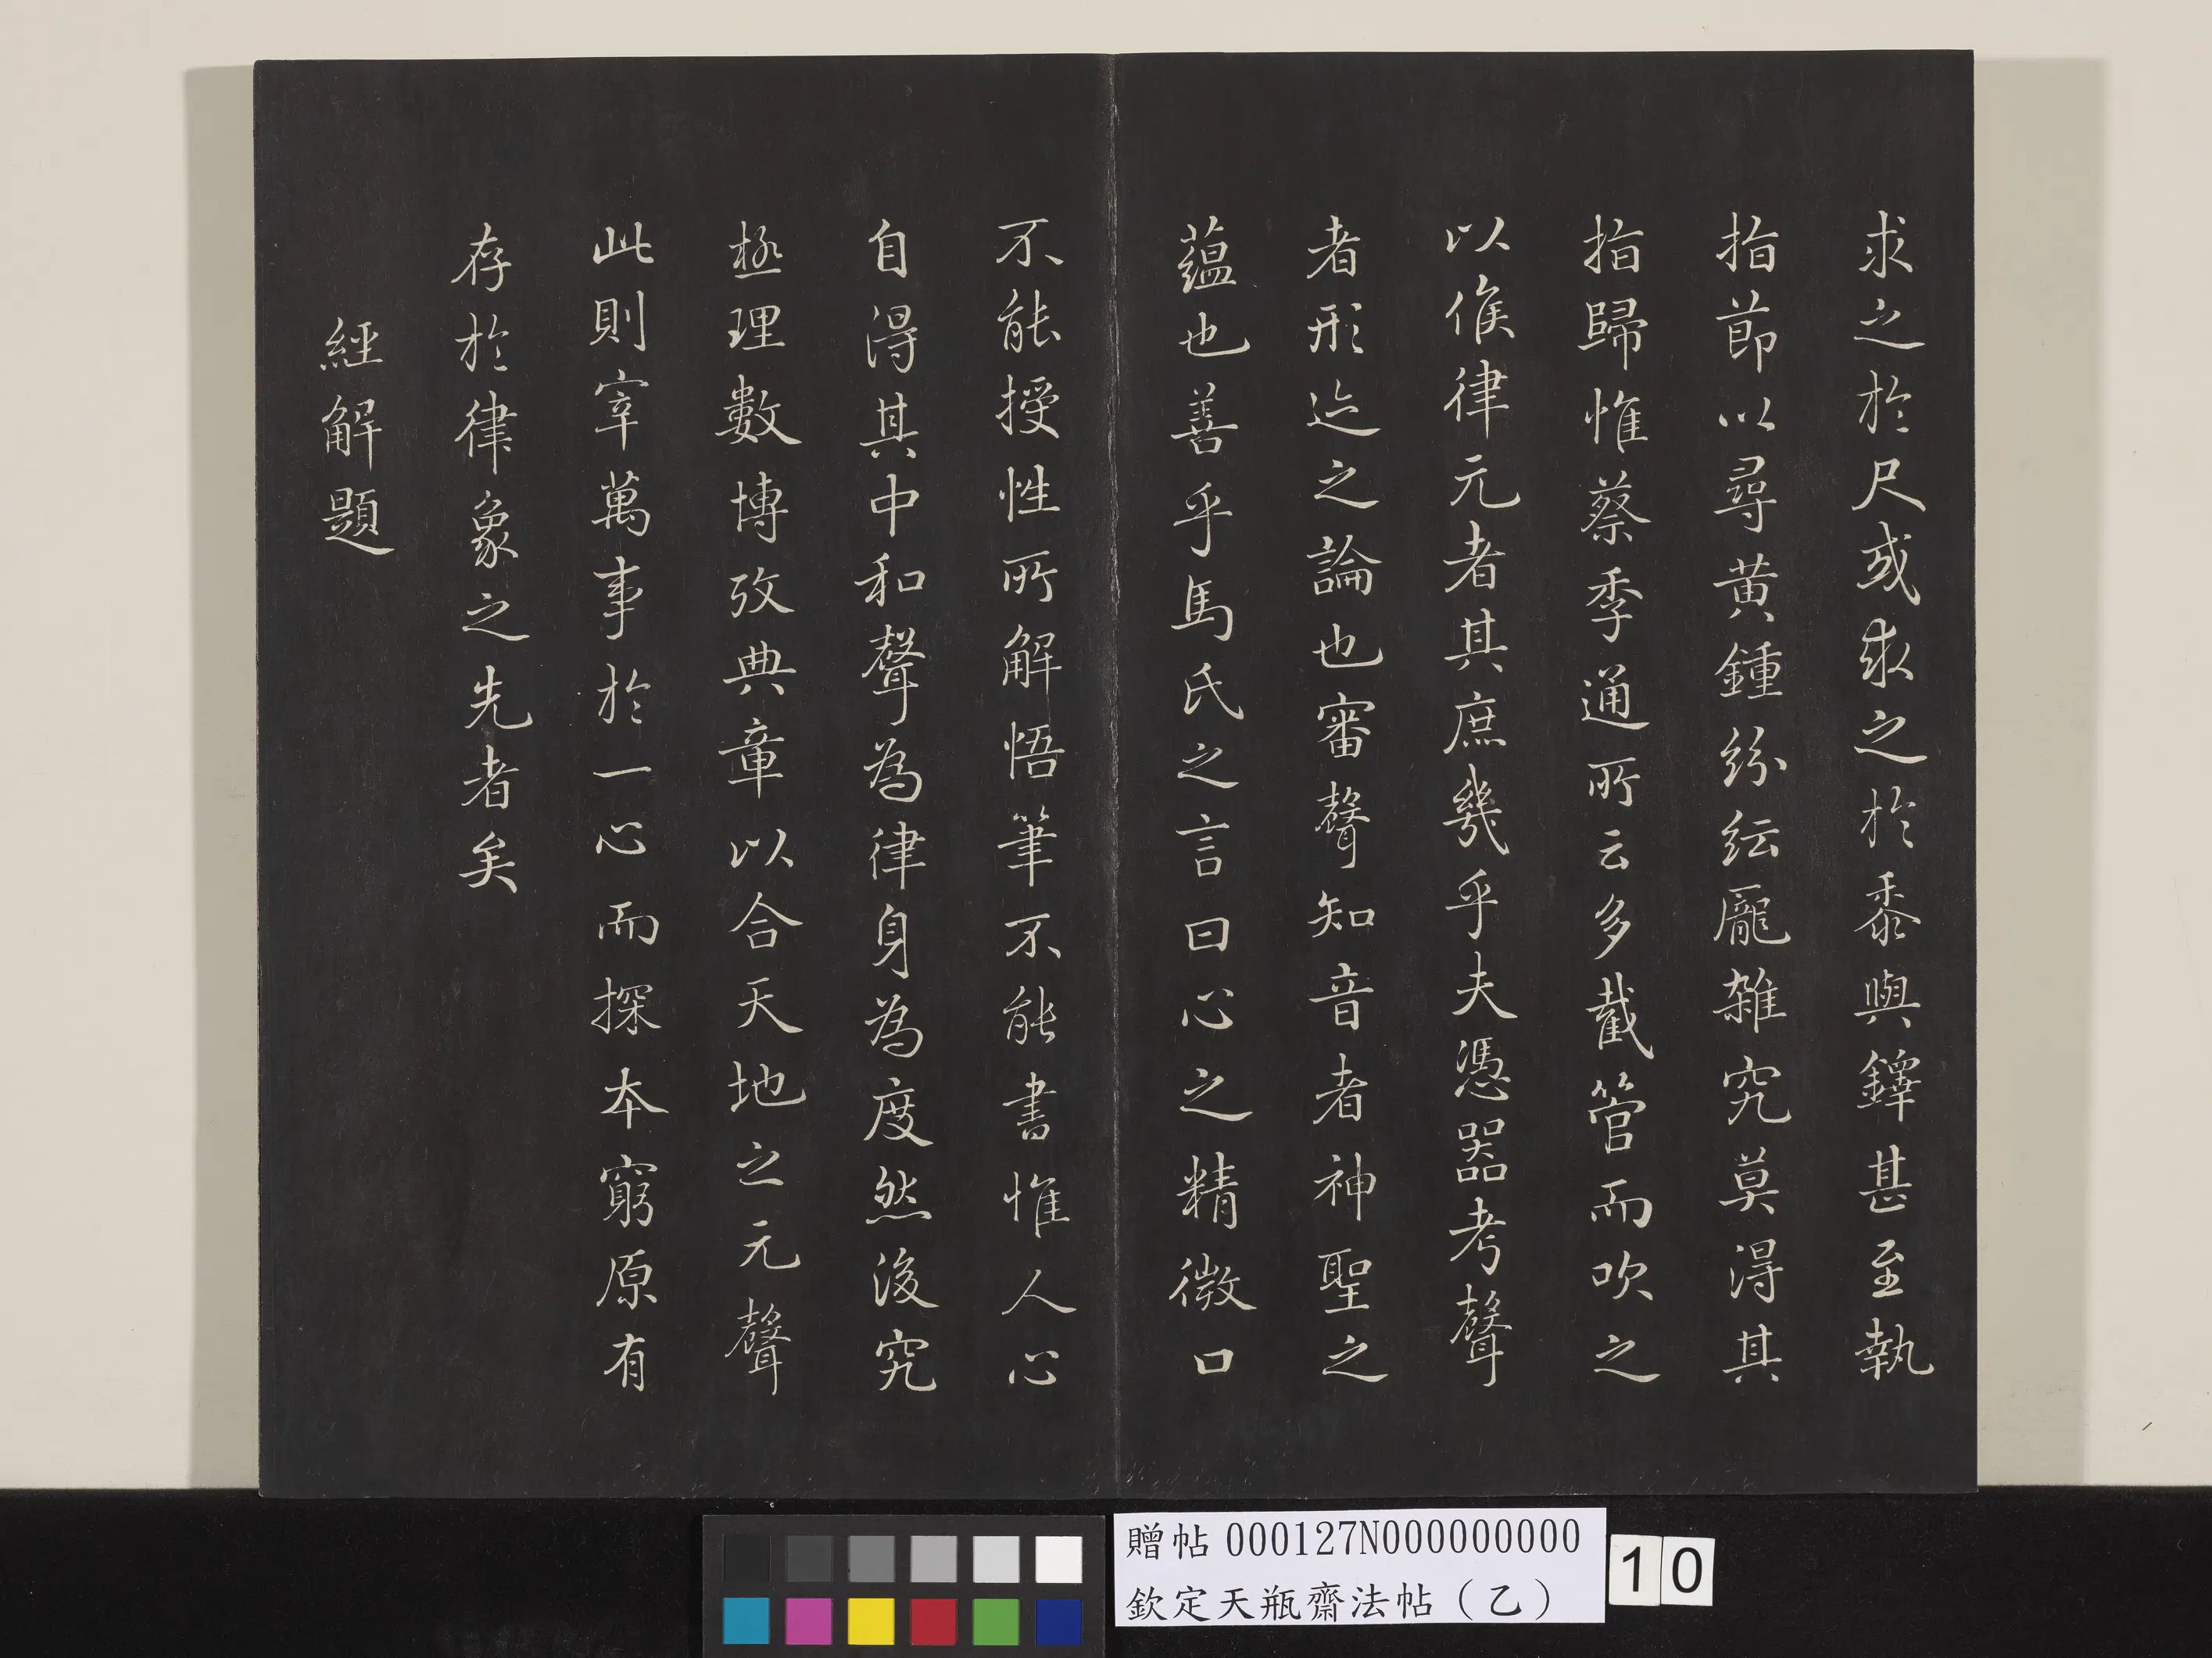 求之於尺或求之於黍與鐸甚至執
指節以尋黄鍾紛紜龐雜究莫得其
指歸惟蔡季通所云多截管而吹之
以俟律元者其庶幾乎夫憑器考聲
者形迹之論也審聲知音者神聖之
蘊也善乎馬氏之言曰心之精微口
不能授性所解悟筆不能書惟人心
自得其中和聲為律身為度然後究
極理數博攷典章以合天地之元聲
此則宰萬事於一心而探本窮原有
存於律象之先者矣
經解題
贈帖 000127N000000000
欽定天瓶齋法帖（乙）
10